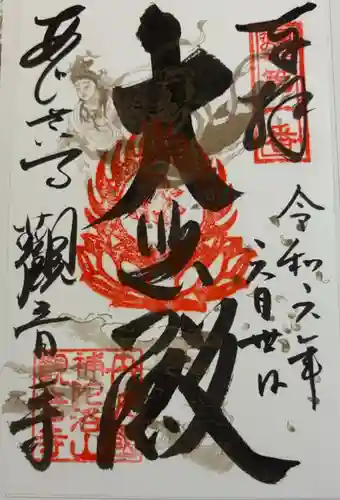 奉拝
令和六年
六月廿日
大悲殿
あじさゐ
観音寺
丹波国
補陀洛山
観音寺